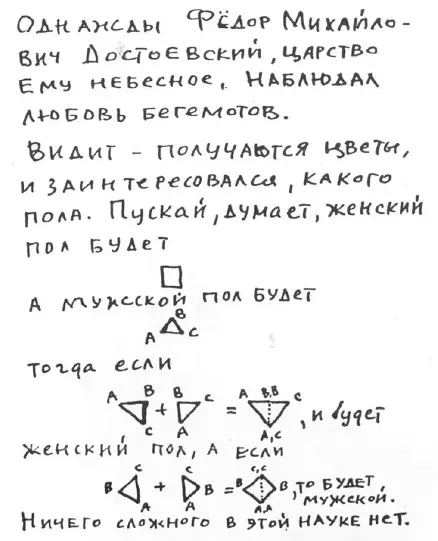 Однажды Фёдор Михайло-
вич Достоевский, царство
ему небесное, наблюдал
любовь бегемотов.
Видит - получаются цветы,
и заинтересовался, какого
пола. Пускай, думает, женский
пол будет
А мужской пол будет
B
A C
тогда если
A B B C A B,B C
+ = , и будет
C A A,C
женский пол, а если
C C C,C
B + B = B B, то будет
A A A,A мужской.
Ничего сложного в этой науке нет.